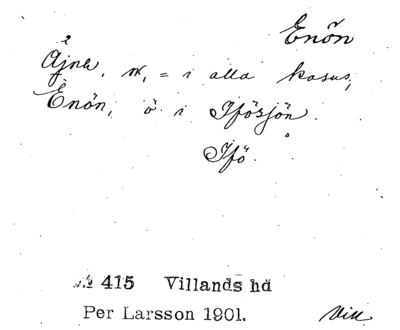 Enön
Åjna, m, = i alla kasus,
Enön, ö i Ifösjön.
Ifö.
№ 415 Villands hd
Per Larsson 1901. Vill